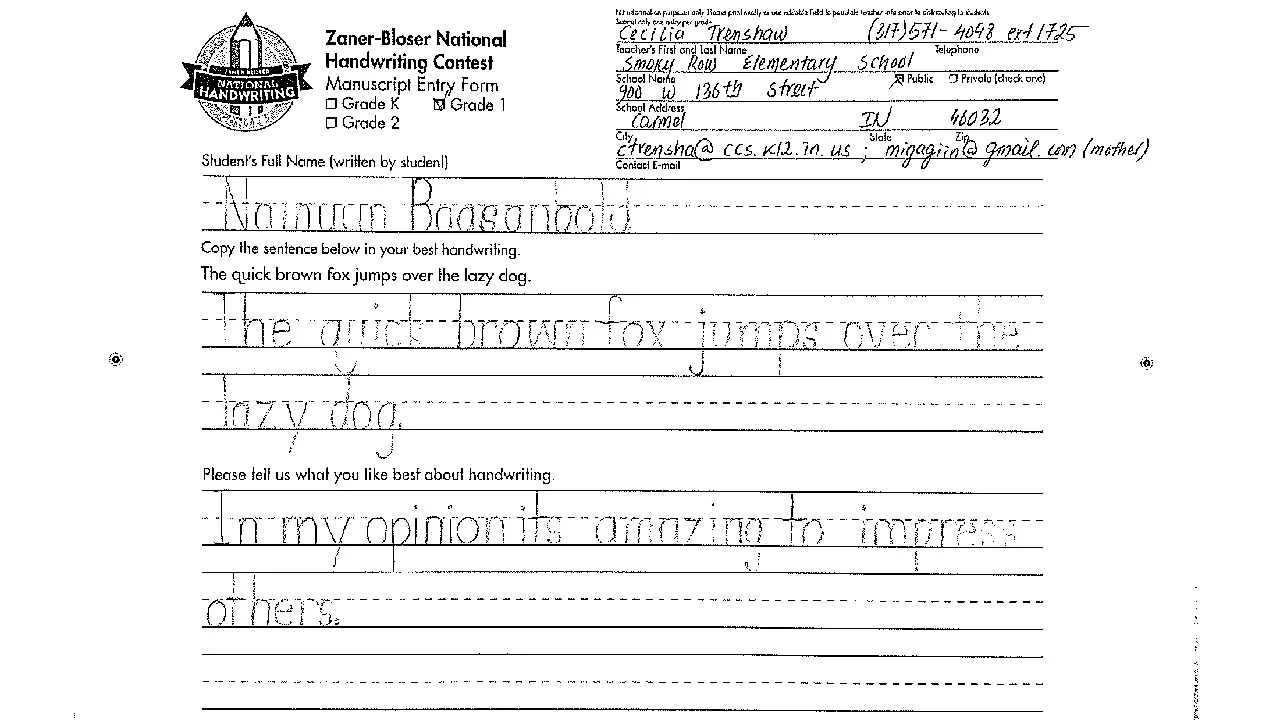 Cecilia Trenshaw (317)571-4098 ext 1725
Teacher's First and Last Name Telephone
Smoky Row Elementary School
School Name ☒ Public ☐ Private (check one)
900 W 136th Street
School Address
Carmel IN 46032
City State Zip
ctrensha@ccs.k12.in.us ; migagiin@gmail.com (mother)
Contact E-mail
ZANER-BLOSER
NATIONAL
HANDWRITING
Zaner-Bloser National
Handwriting Contest
Manuscript Entry Form
☐ Grade K ☒ Grade 1
☐ Grade 2
Student's Full Name (written by student)
Nainuum Baasanbold
Copy the sentence below in your best handwriting.
The quick brown fox jumps over the lazy dog.
The quick brown fox jumps over the
lazy dog.
Please tell us what you like best about handwriting.
In my opinion it's amazing to impress
others.